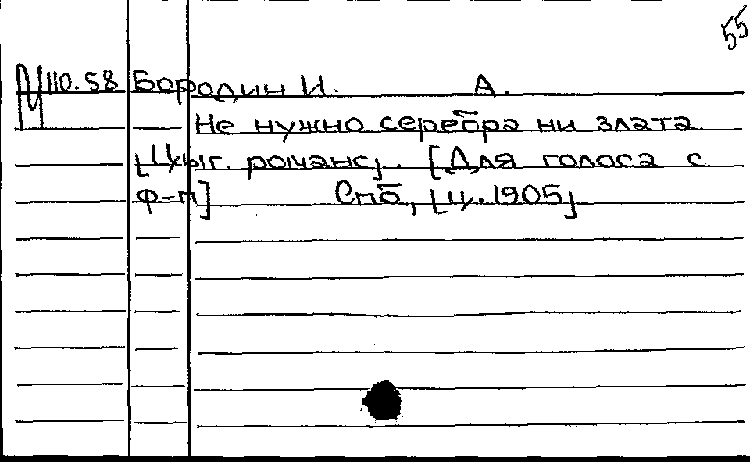 55
М 110.58 Бородин И. А.
Не нужно серебра ни злата
[Цыг. романс]. [Для голоса с
ф-п] Спб, [ц. 1905]